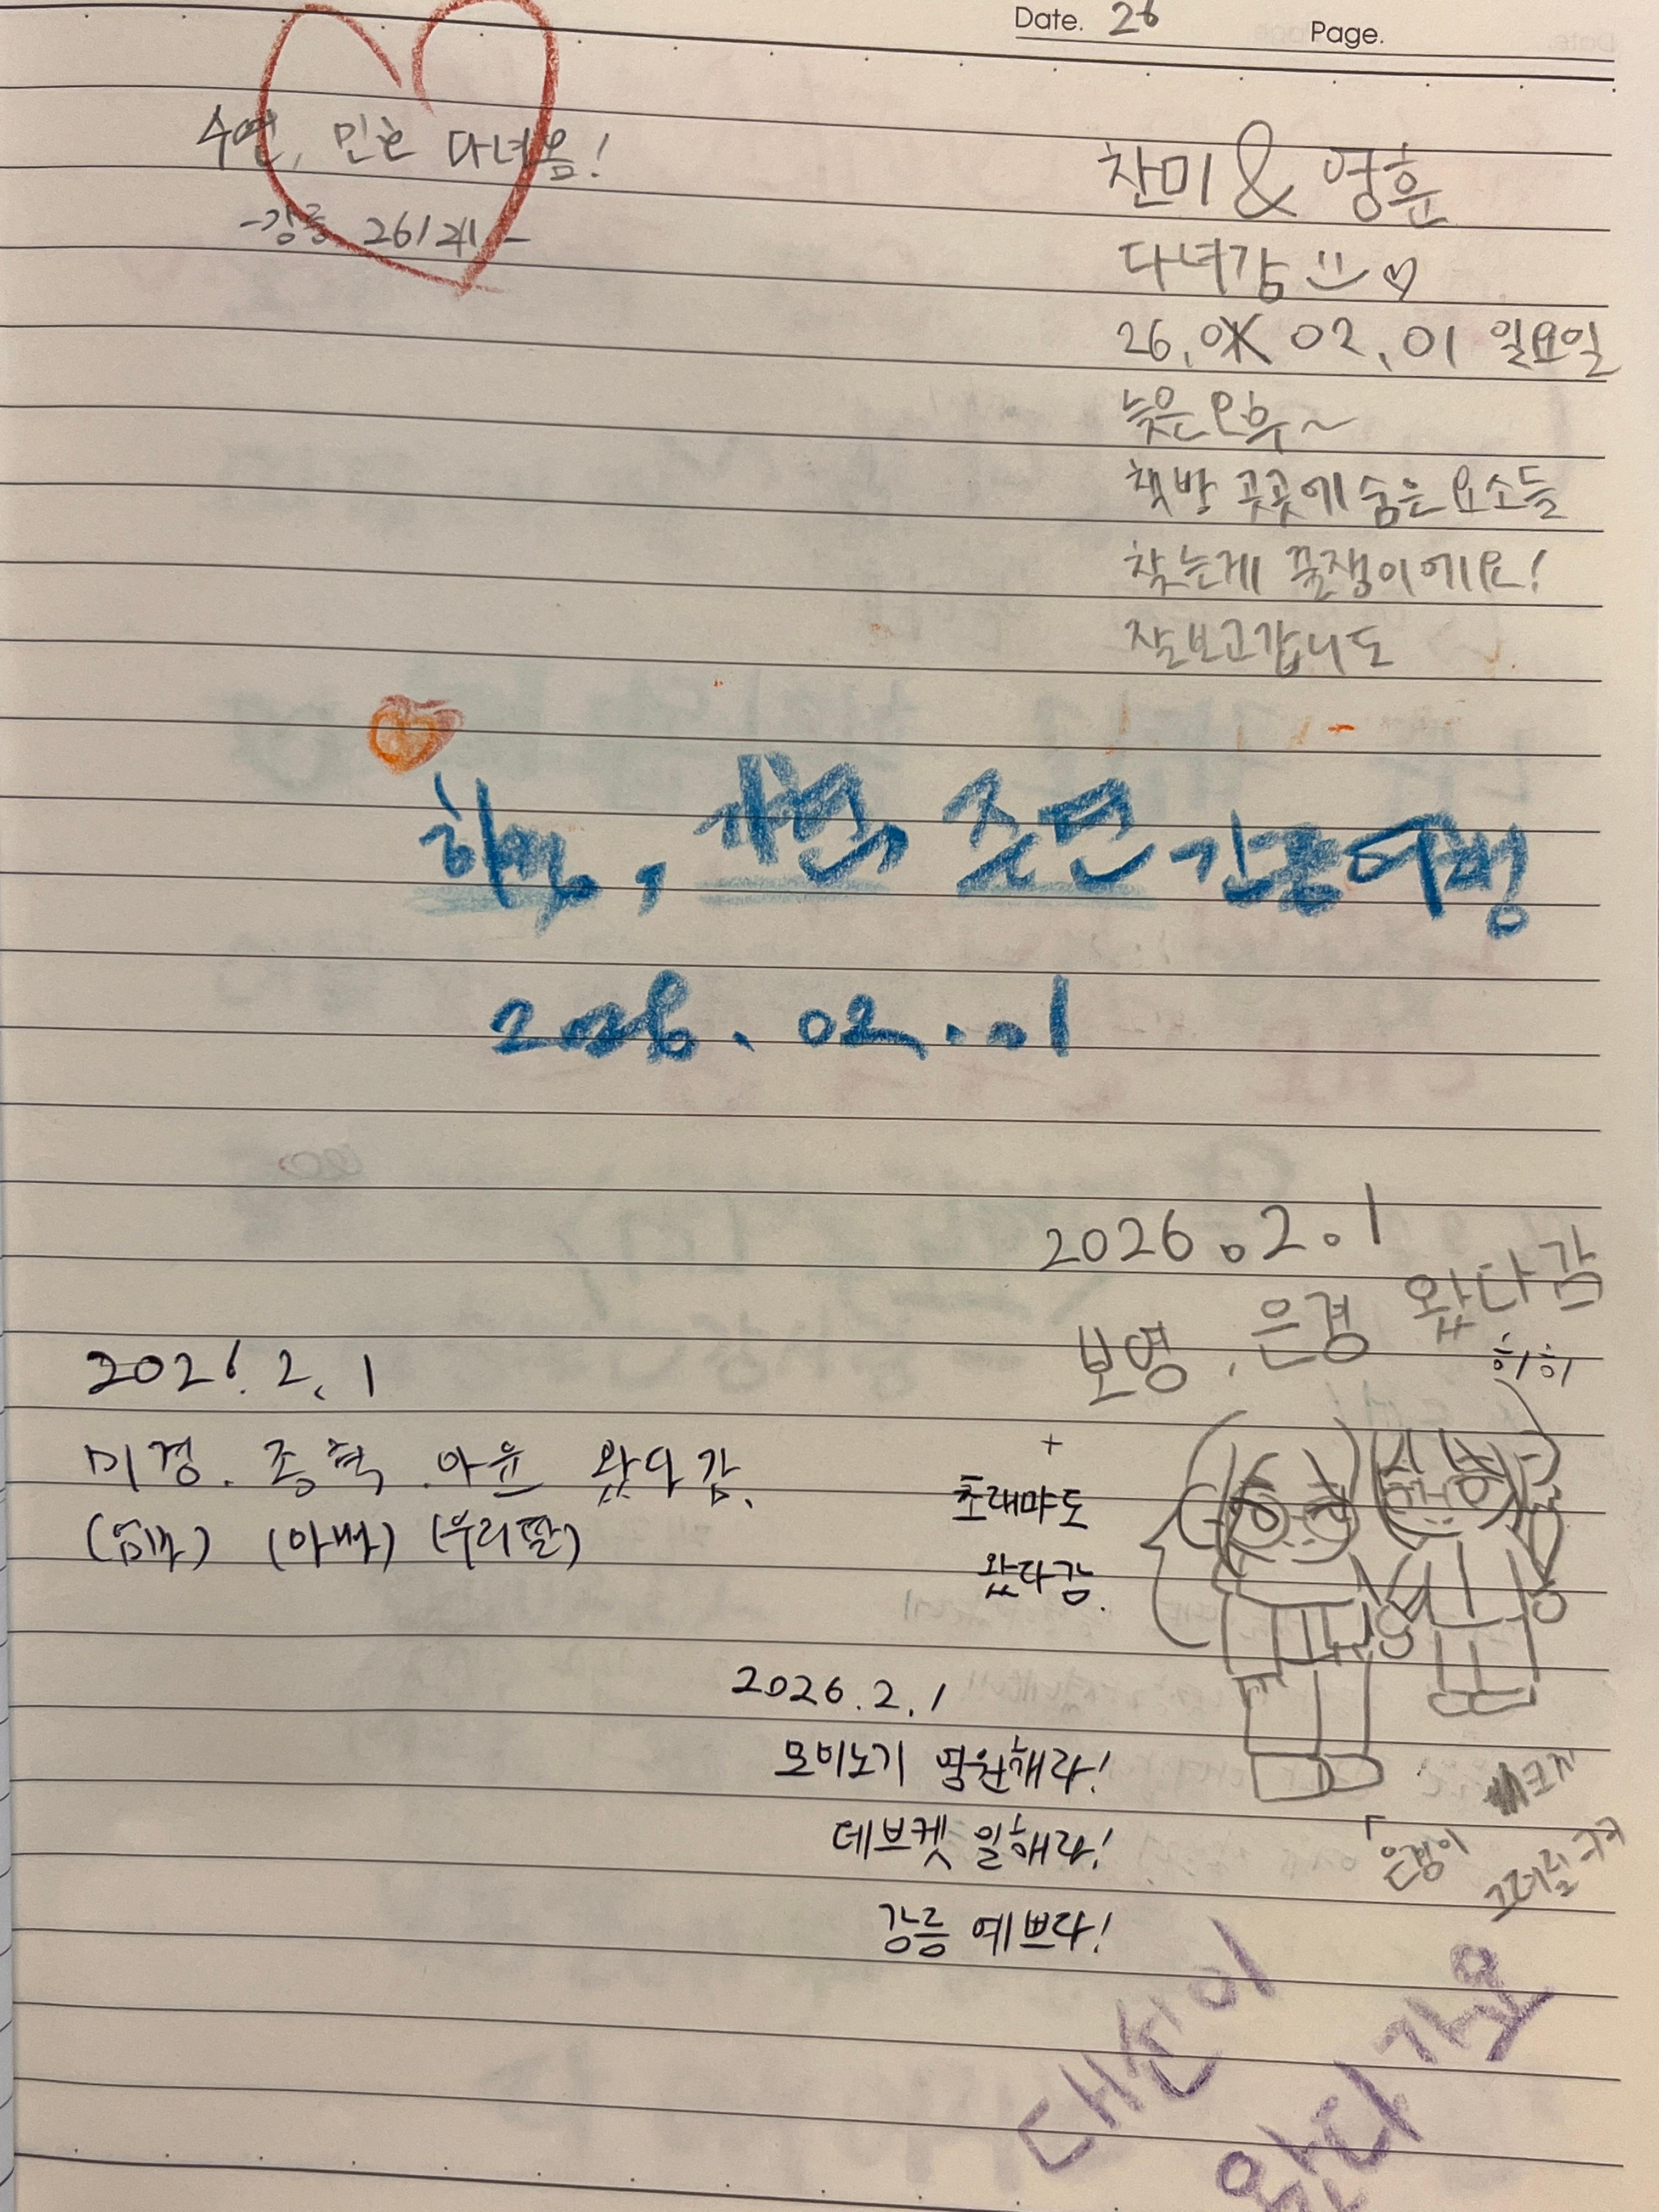 Date. 26 Page.
수연, 민호 다녀옴!
-강릉
찬미 & 영훈
다녀감 :) ♡
26. 02. 01 일요일
늦은 오후~
책방 곳곳에 숨은 요소들
찾는게 꿀잼이에요!
잘보고갑니도
희정, 강릉여행
2026. 02. 01
2026.2.1
보영, 은경 왔다감
히히
2026. 2. 1
미경. 종혁. 아윤 왔다감.
(엄마) (아빠) (우리딸)
+
초래먀도
왔다감.
2026.2.1
모이노기 영원해라!
데브켓 일해라!
강릉 예쁘다!
「은경이
그려질 ㅋㅋ
대신이
왔다가요